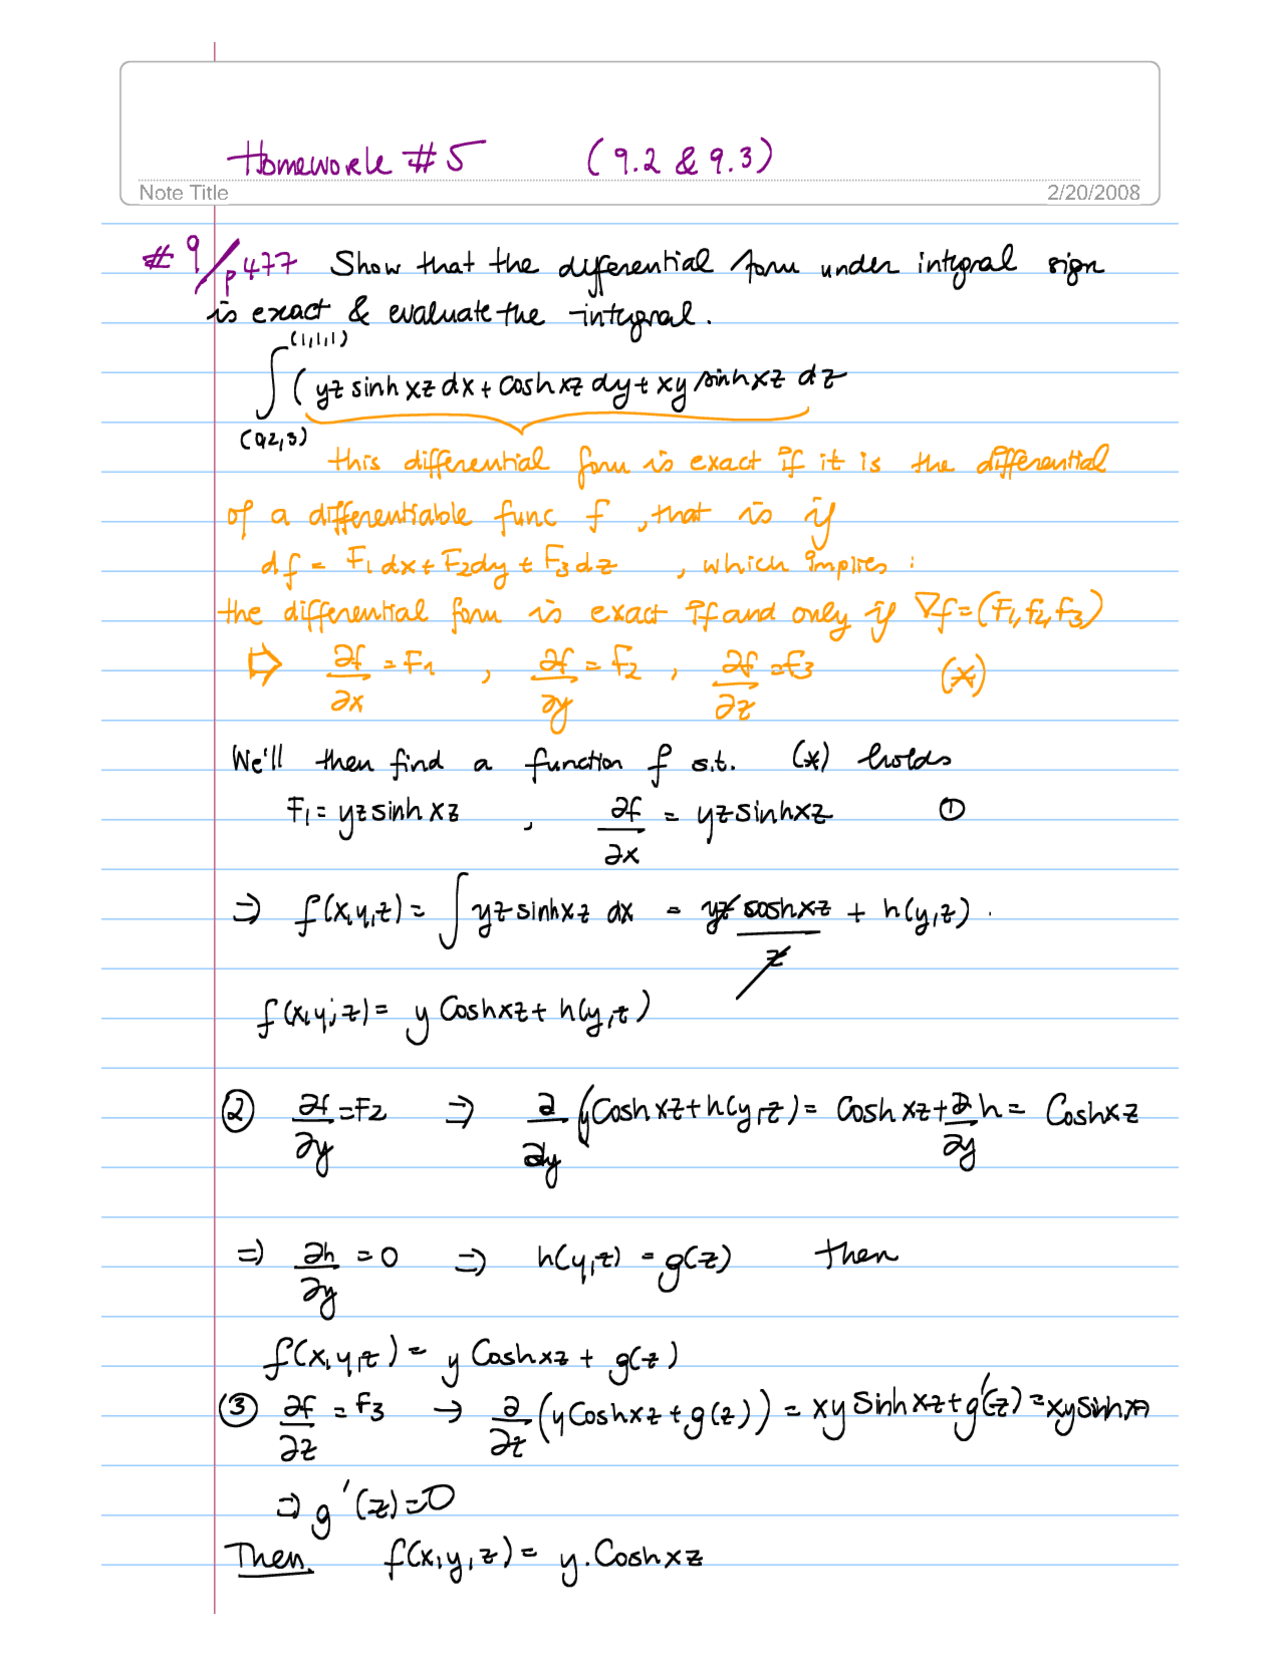 Homework #5 (9.2 & 9.3)
Note Title 2/20/2008
#9/p477 Show that the differential form under integral sign
is exact & evaluate the integral.
(1,1,1)
∫ ( yz sinh xz dx + cosh xz dy + xy sinh xz dz
(0,2,3)
this differential form is exact if it is the differential
of a differentiable func f , that is if
df = F1 dx + F2 dy + F3 dz , which implies :
the differential form is exact if and only if ∇f = (F1, F2, F3)
⇨ ∂f/∂x = F1 , ∂f/∂y = F2 , ∂f/∂z = F3 (*)
We'll then find a function f s.t. (*) holds
F1 = yz sinh xz , ∂f/∂x = yz sinh xz ①
⇒ f(x,y,z) = ∫ yz sinh xz dx = yz cosh xz / z + h(y,z) .
f(x,y,z) = y Cosh xz + h(y,z)
② ∂f/∂y = F2 ⇒ ∂/∂y (y Cosh xz + h(y,z) = Cosh xz + ∂/∂y h = Cosh xz
⇒ ∂h/∂y = 0 ⇒ h(y,z) = g(z) then
f(x,y,z) = y Cosh xz + g(z)
③ ∂f/∂z = F3 → ∂/∂z (y Cosh xz + g(z)) = xy Sinh xz + g'(z) = xy Sinh xz
⇒ g'(z) = 0
Then f(x,y,z) = y . Cosh xz